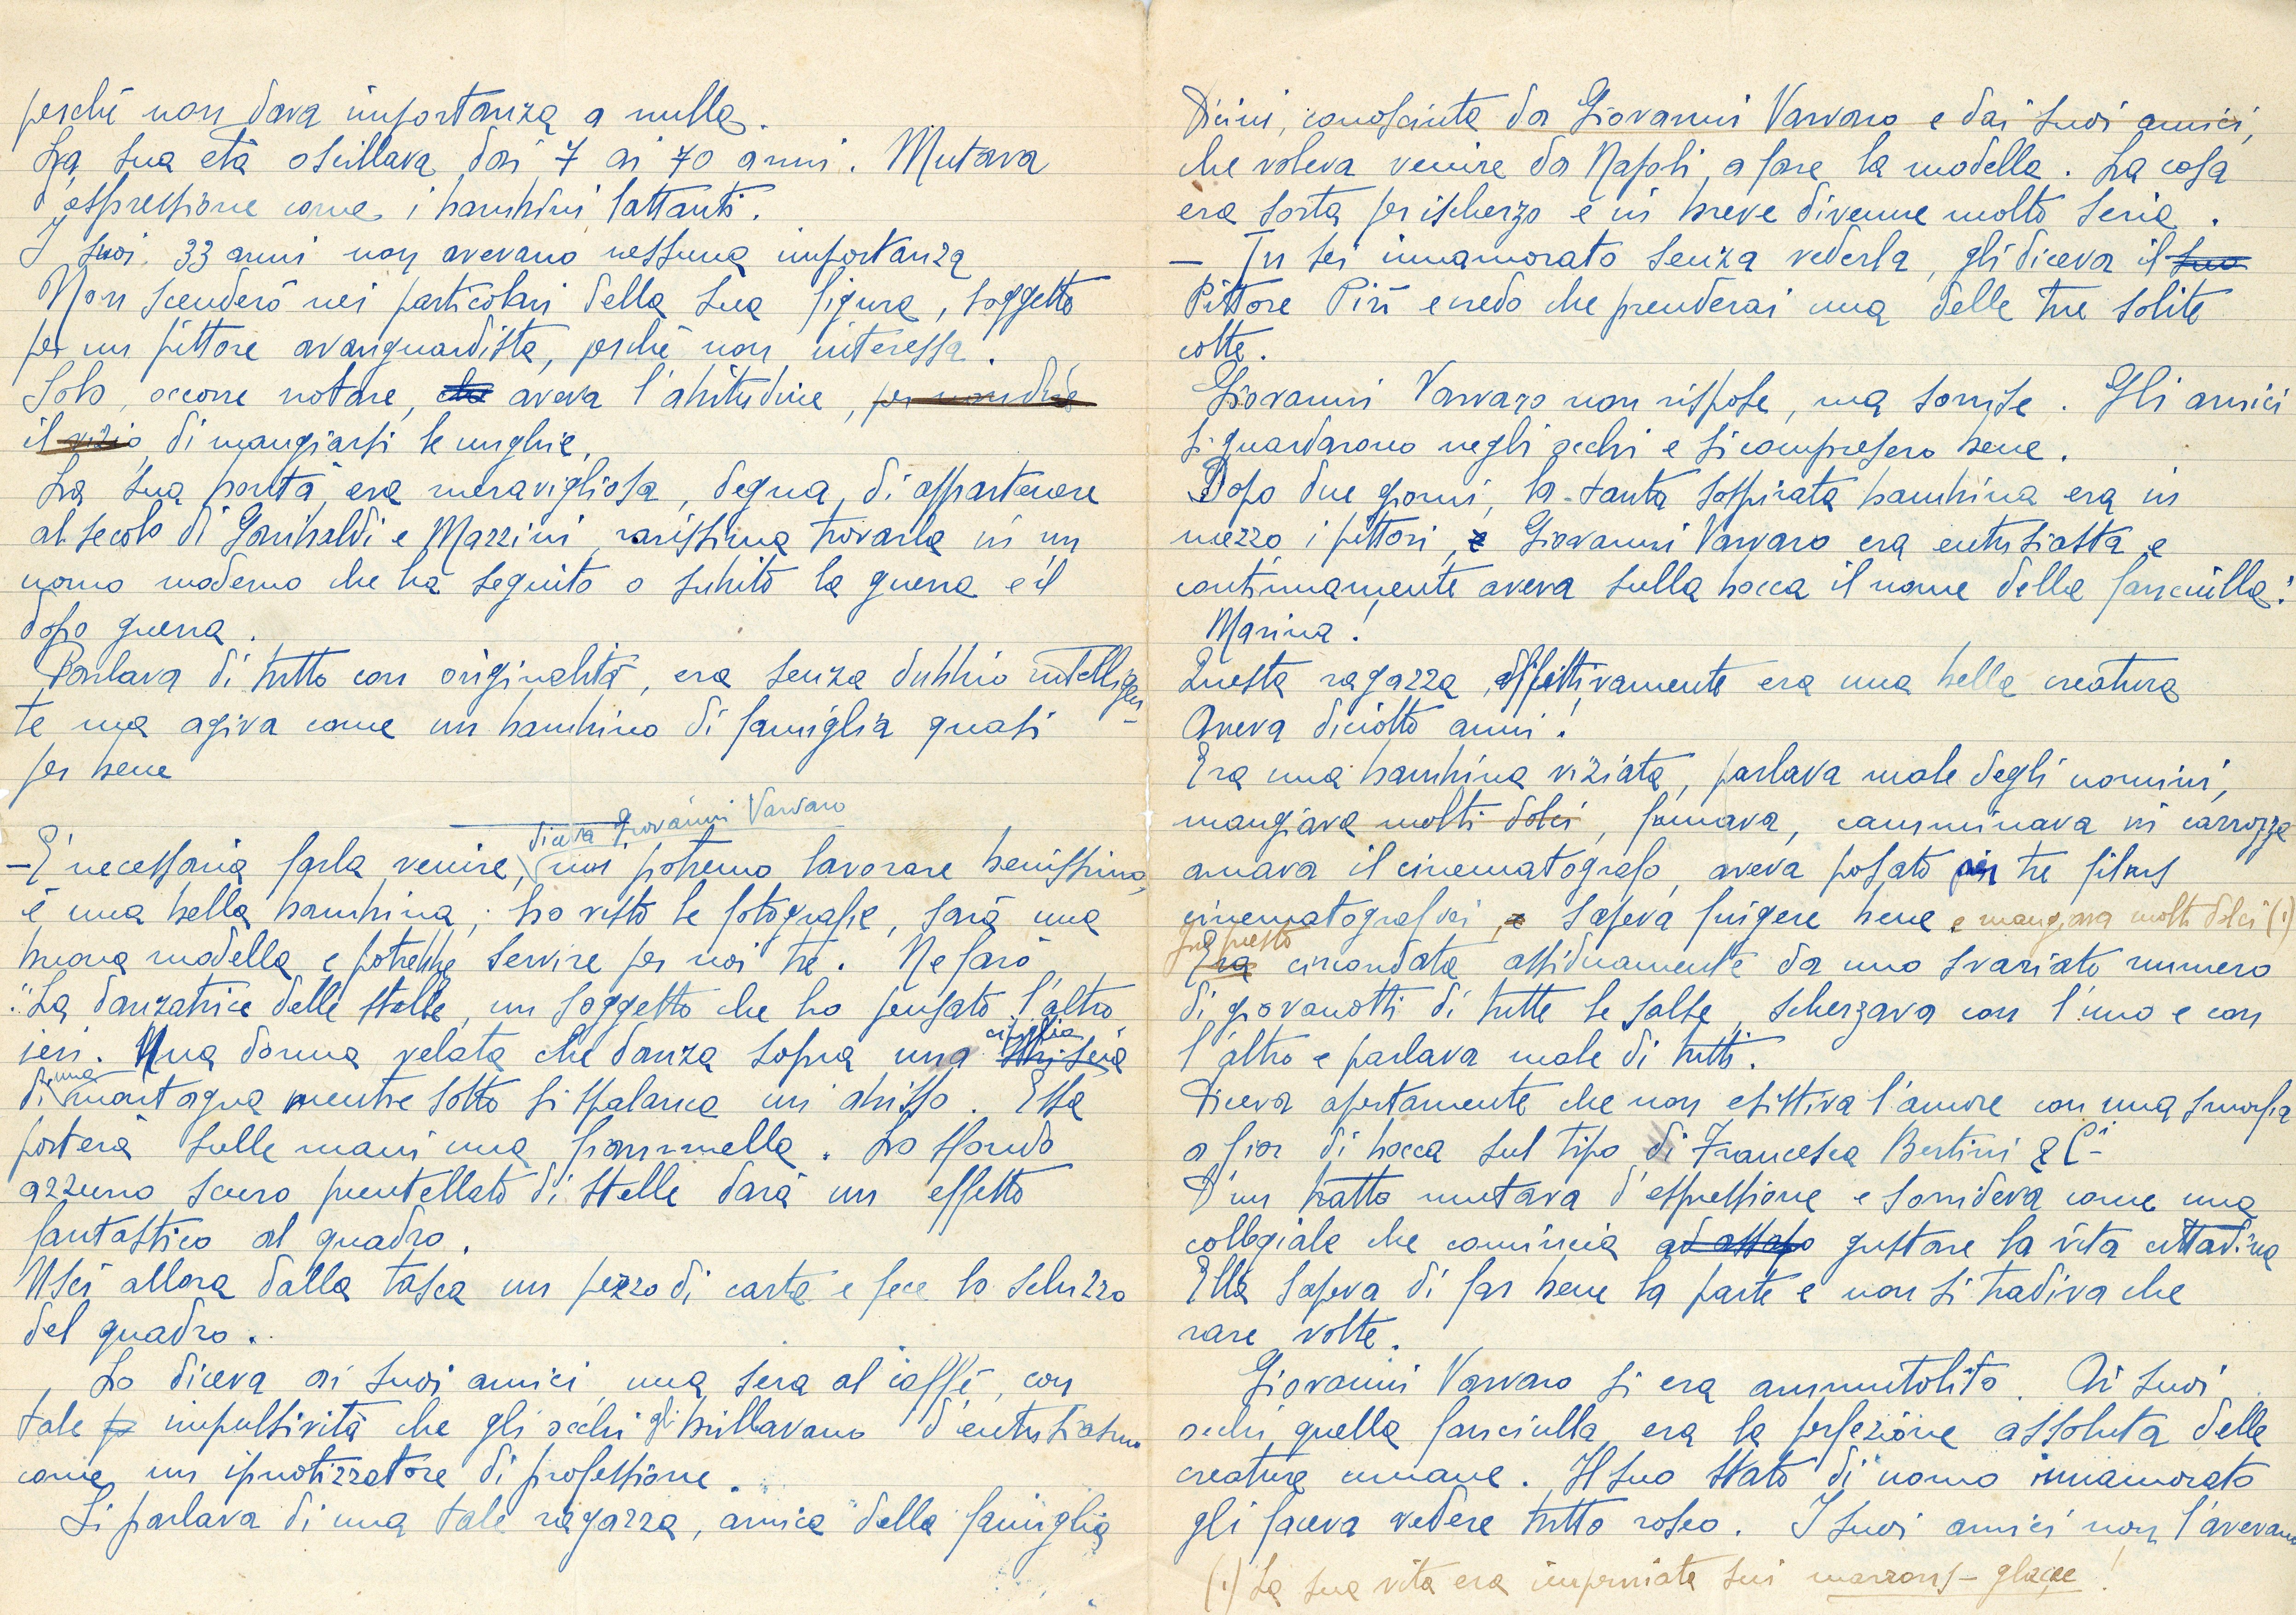 perché non dava importanza a nulla.
La sua età oscillava dai 7 ai 70 anni. Mutava
d'espressione come i bambini lattanti.
I suoi 33 anni non avevano nessuna importanza
Non scenderò nei particolari della sua figura, soggetto
per un pittore avanguardista, perché non interessa.
Solo, occorre notare, che aveva l'abitudine, per non dire
il vizio, di mangiarsi le unghie.
La sua bontà era meravigliosa, degna, di appartenere
al secolo di Garibaldi e Mazzini, rarissima trovarla in un
uomo moderno che ha seguito o subito la guerra e il
dopo guerra.
Parlava di tutto con originalità, era senza dubbio intelligen-
te ma agiva come un bambino di famiglia quasi
per bene
diceva Giovanni Varvaro
– È necessaria farla venire, noi potremo lavorare benissimo,
è una bella bambina; ho visto le fotografie, sarà una
buona modella e potrebbe servire per noi tre. Ne farò
"La danzatrice delle stelle, un soggetto che ho pensato l'altro
ieri. Una donna velata che danza sopra una striscia
di una montagna mentre sotto si spalanca un abisso. Essa
porterà sulle mani una fiammella. Lo sfondo
azzurro scuro puntellato di stelle darà un effetto
fantastico al quadro.
Uscì allora dalla tasca un pezzo di carta e fece lo schizzo
del quadro.
Lo diceva ai suoi amici una sera al caffè, con
tale impulsività che gli occhi gli brillavano d'entusiasmo
come un ipnotizzatore di professione.
Si parlava di una tale ragazza, amica della famiglia
Dicini, conosciuta da Giovanni Varvaro e dai suoi amici,
che voleva venire da Napoli, a fare la modella. La cosa
era sorta per ischerzo e in breve divenne molto seria.
– Tu sei innamorato senza vederla, gli diceva il suo
Pittore Pirì e credo che prenderai una delle tue solite
cotte.
Giovanni Varvaro non rispose, ma sorrise. Gli amici
si guardarono negli occhi e si compresero bene.
Dopo due giorni, la tanta sospirata bambina era in
mezzo i pittori, e Giovanni Varvaro era entusiasta e
continuamente aveva sulla bocca il nome della fanciulla:
Marina!
Questa ragazza, effettivamente era una bella creatura
Aveva diciotto anni!
Era una bambina viziata, parlava male degli uomini,
mangiava molti dolci, fumava, camminava in carrozza
amava il cinematografo, aveva posato in tre films
cinematografici, e sapeva fingere bene e mangiava molti dolci (1)
Era circondata assiduamente da uno svariato numero
di giovanotti di tutte le salse, scherzava con l'uno e con
l'altro e parlava male di tutti.
Diceva apertamente che non esisteva l'amore con una smorfia
a fior di bocca sul tipo di Francesca Bertini & C.i
D'un tratto mutava d'espressione e sorrideva come una
collegiale che comincia ad assapo gustare la vita cittadina
Ella sapeva di far bene la parte e non si tradiva che
rare volte.
Giovanni Varvaro si era ammutolito. Ai suoi
occhi quella fanciulla era la perfezione assoluta delle
creature umane. Il suo stato di uomo innamorato
gli faceva vedere tutto roseo. I suoi amici non l'avevano
(1) La sua vita era imperniata sui marrons-glacee!